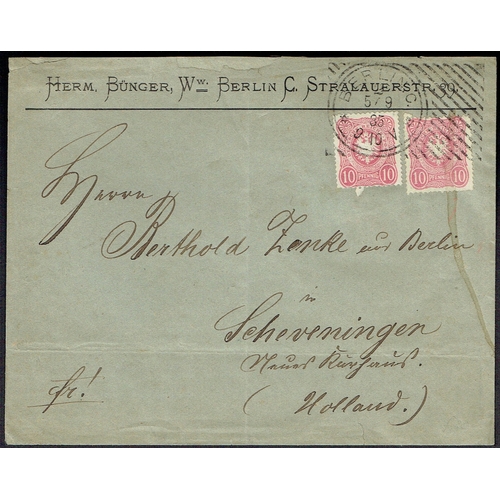 HERM. BÜNGER, Ww. BERLIN C. STRALAUERSTR. 39.
BERLIN, C.
5/9
85
8-9 N
10 PFENNIG 10
10 PFENNIG 10
Herrn
Berthold Zenke aus Berlin
in
Scheveningen
Neues Kurhaus.
(Holland.)
fr!